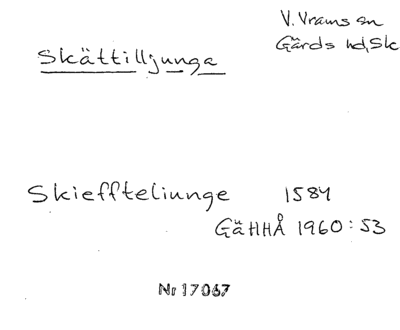 V. Vrams sn
Skättilljunga
Gärds hd, Sk
Skieffteliunge 1584
GäHHÅ 1960:53
Nr 17067